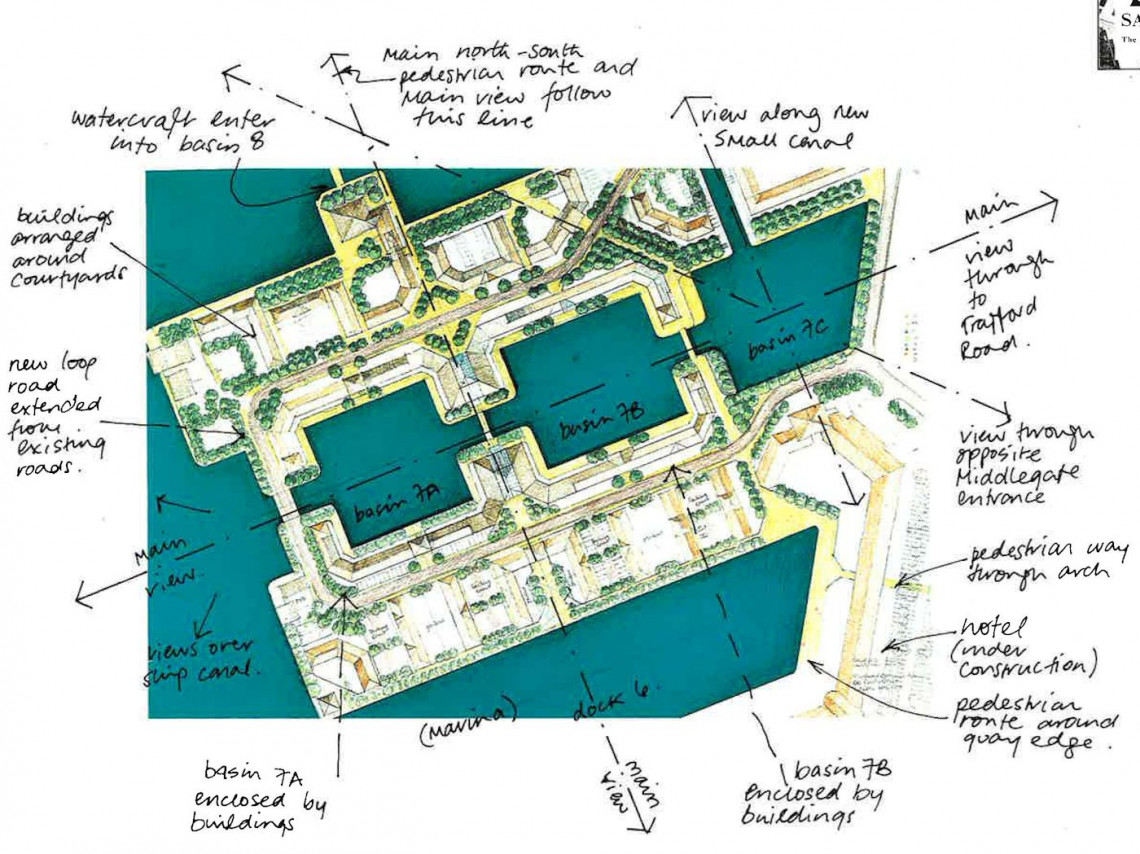 SA
The
Main north-south
pedestrian route and
Main view follow
this line
watercraft enter
into basin 8
view along new
small canal
buildings
arranged
around
courtyards
Main
view
through
to
Trafford
Road.
new loop
road
extended
from
existing
roads.
basin 7C
basin 7B
basin 7A
view through
opposite
Middlegate
entrance
Main
view.
pedestrian way
through arch
views over
ship canal.
hotel
(under
construction)
pedestrian
route around
quay edge.
(marina)
dock 6.
main
view
basin 7A
enclosed by
buildings
basin 7B
enclosed by
buildings